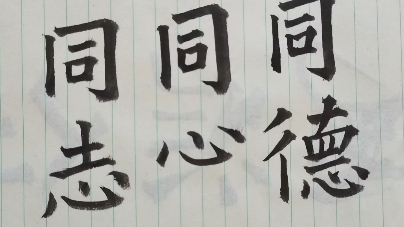 同德
同心
同志